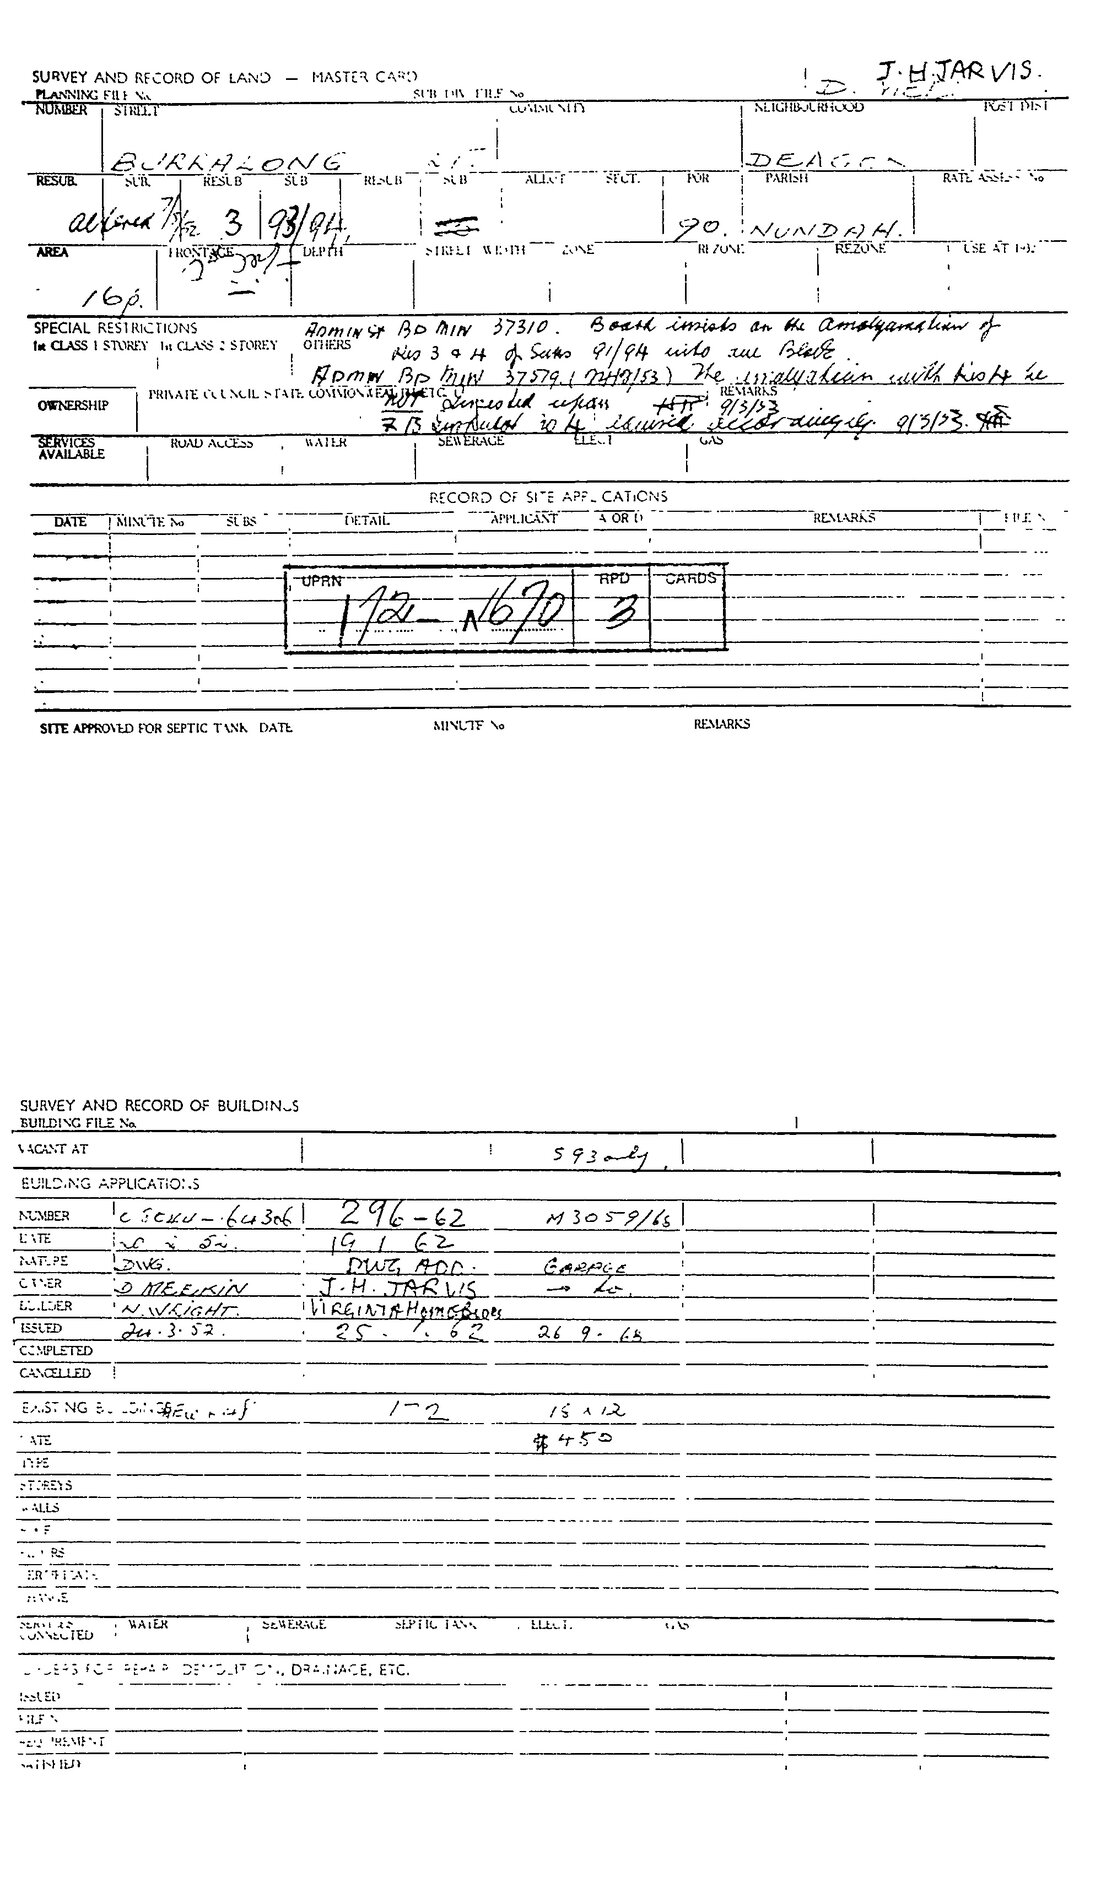 J.H JARVIS.
SURVEY AND RECORD OF LAND — MASTER CARD
D.
PLANNING FILE No. SUB DIV. FILE No
NUMBER STREET COMMUNITY NEIGHBOURHOOD POST DIST
BURRALONG ST. DEAGON
RESUB. SUB. RESUB SUB RESUB SUB ALLOT SECT. POR PARISH RATE ASSESS No
altered 7/5/52 3 93/94. 90. NUNDAH.
AREA FRONTAGE DEPTH STREET WIDTH ZONE REZONE REZONE USE AT 1952
16p.
SPECIAL RESTRICTIONS ADMINST BD MIN 37310. Board insists on the amalgamation of
1st CLASS 1 STOREY 1st CLASS 2 STOREY OTHERS Res 3 & 4 of Subs 91/94 into one Block.
ADMIN BD MIN 37579 The with Res 4 be
PRIVATE COUNCIL STATE COMMONWEALTH ETC. REMARKS
OWNERSHIP NOT insisted upon 9/3/53
accordingly. 9/3/53.
SERVICES AVAILABLE ROAD ACCESS WATER SEWERAGE ELECT GAS
RECORD OF SITE APPLICATIONS
DATE MINUTE No SUBS DETAIL APPLICANT A OR D REMARKS FILE N
UPRN RPD CARDS
172 — 1670 3
SITE APPROVED FOR SEPTIC TANK DATE MINUTE No REMARKS
SURVEY AND RECORD OF BUILDINGS
BUILDING FILE No.
VACANT AT S 93 only.
BUILDING APPLICATIONS
NUMBER 64306 296-62 M3059/68
DATE 19 1 62
NATURE DWG. DWG ADD. GARAGE
OWNER D MEEKIN J.H. JARVIS → do.
BUILDER N. WRIGHT. VIRGINIA Home Bldrs
ISSUED 24.3.52. 25.1.62 26 9.68
COMPLETED
CANCELLED
EXISTING BUILDINGS 1-2 18 x 12
DATE $450
TYPE
STOREYS
WALLS
ROOF
FLOORS
CERTIFICATE
CHANGE
SERVICES CONNECTED WATER SEWERAGE SEPTIC TANK ELECT. GAS
ORDERS FOR REPAIR, DEMOLITION, DRAINAGE, ETC.
ISSUED
FILE N
REQUIREMENT
SATISFIED